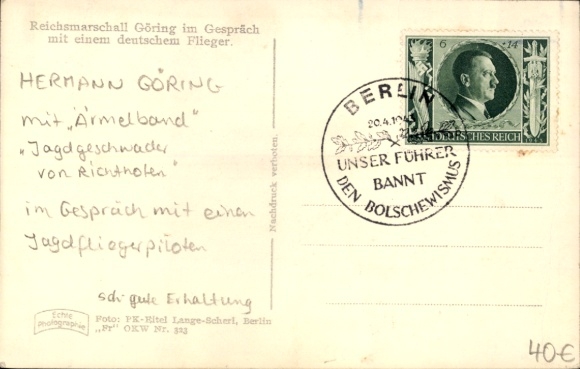 Reichsmarschall Göring im Gespräch
mit einem deutschem Flieger.
HERMANN GÖRING
mit „Ärmelband"
„Jagdgeschwader
von Richthofen"
im Gespräch mit einem
Jagdfliegerpiloten
sehr gute Erhaltung
Echte
Photographie
Foto: PK-Eitel Lange-Scherl, Berlin
„Fr" OKW Nr. 323
Nachdruck verboten.
6 + 14
DEUTSCHES REICH
BERLIN
20.4.1943
UNSER FÜHRER
BANNT
DEN BOLSCHEWISMUS
40€